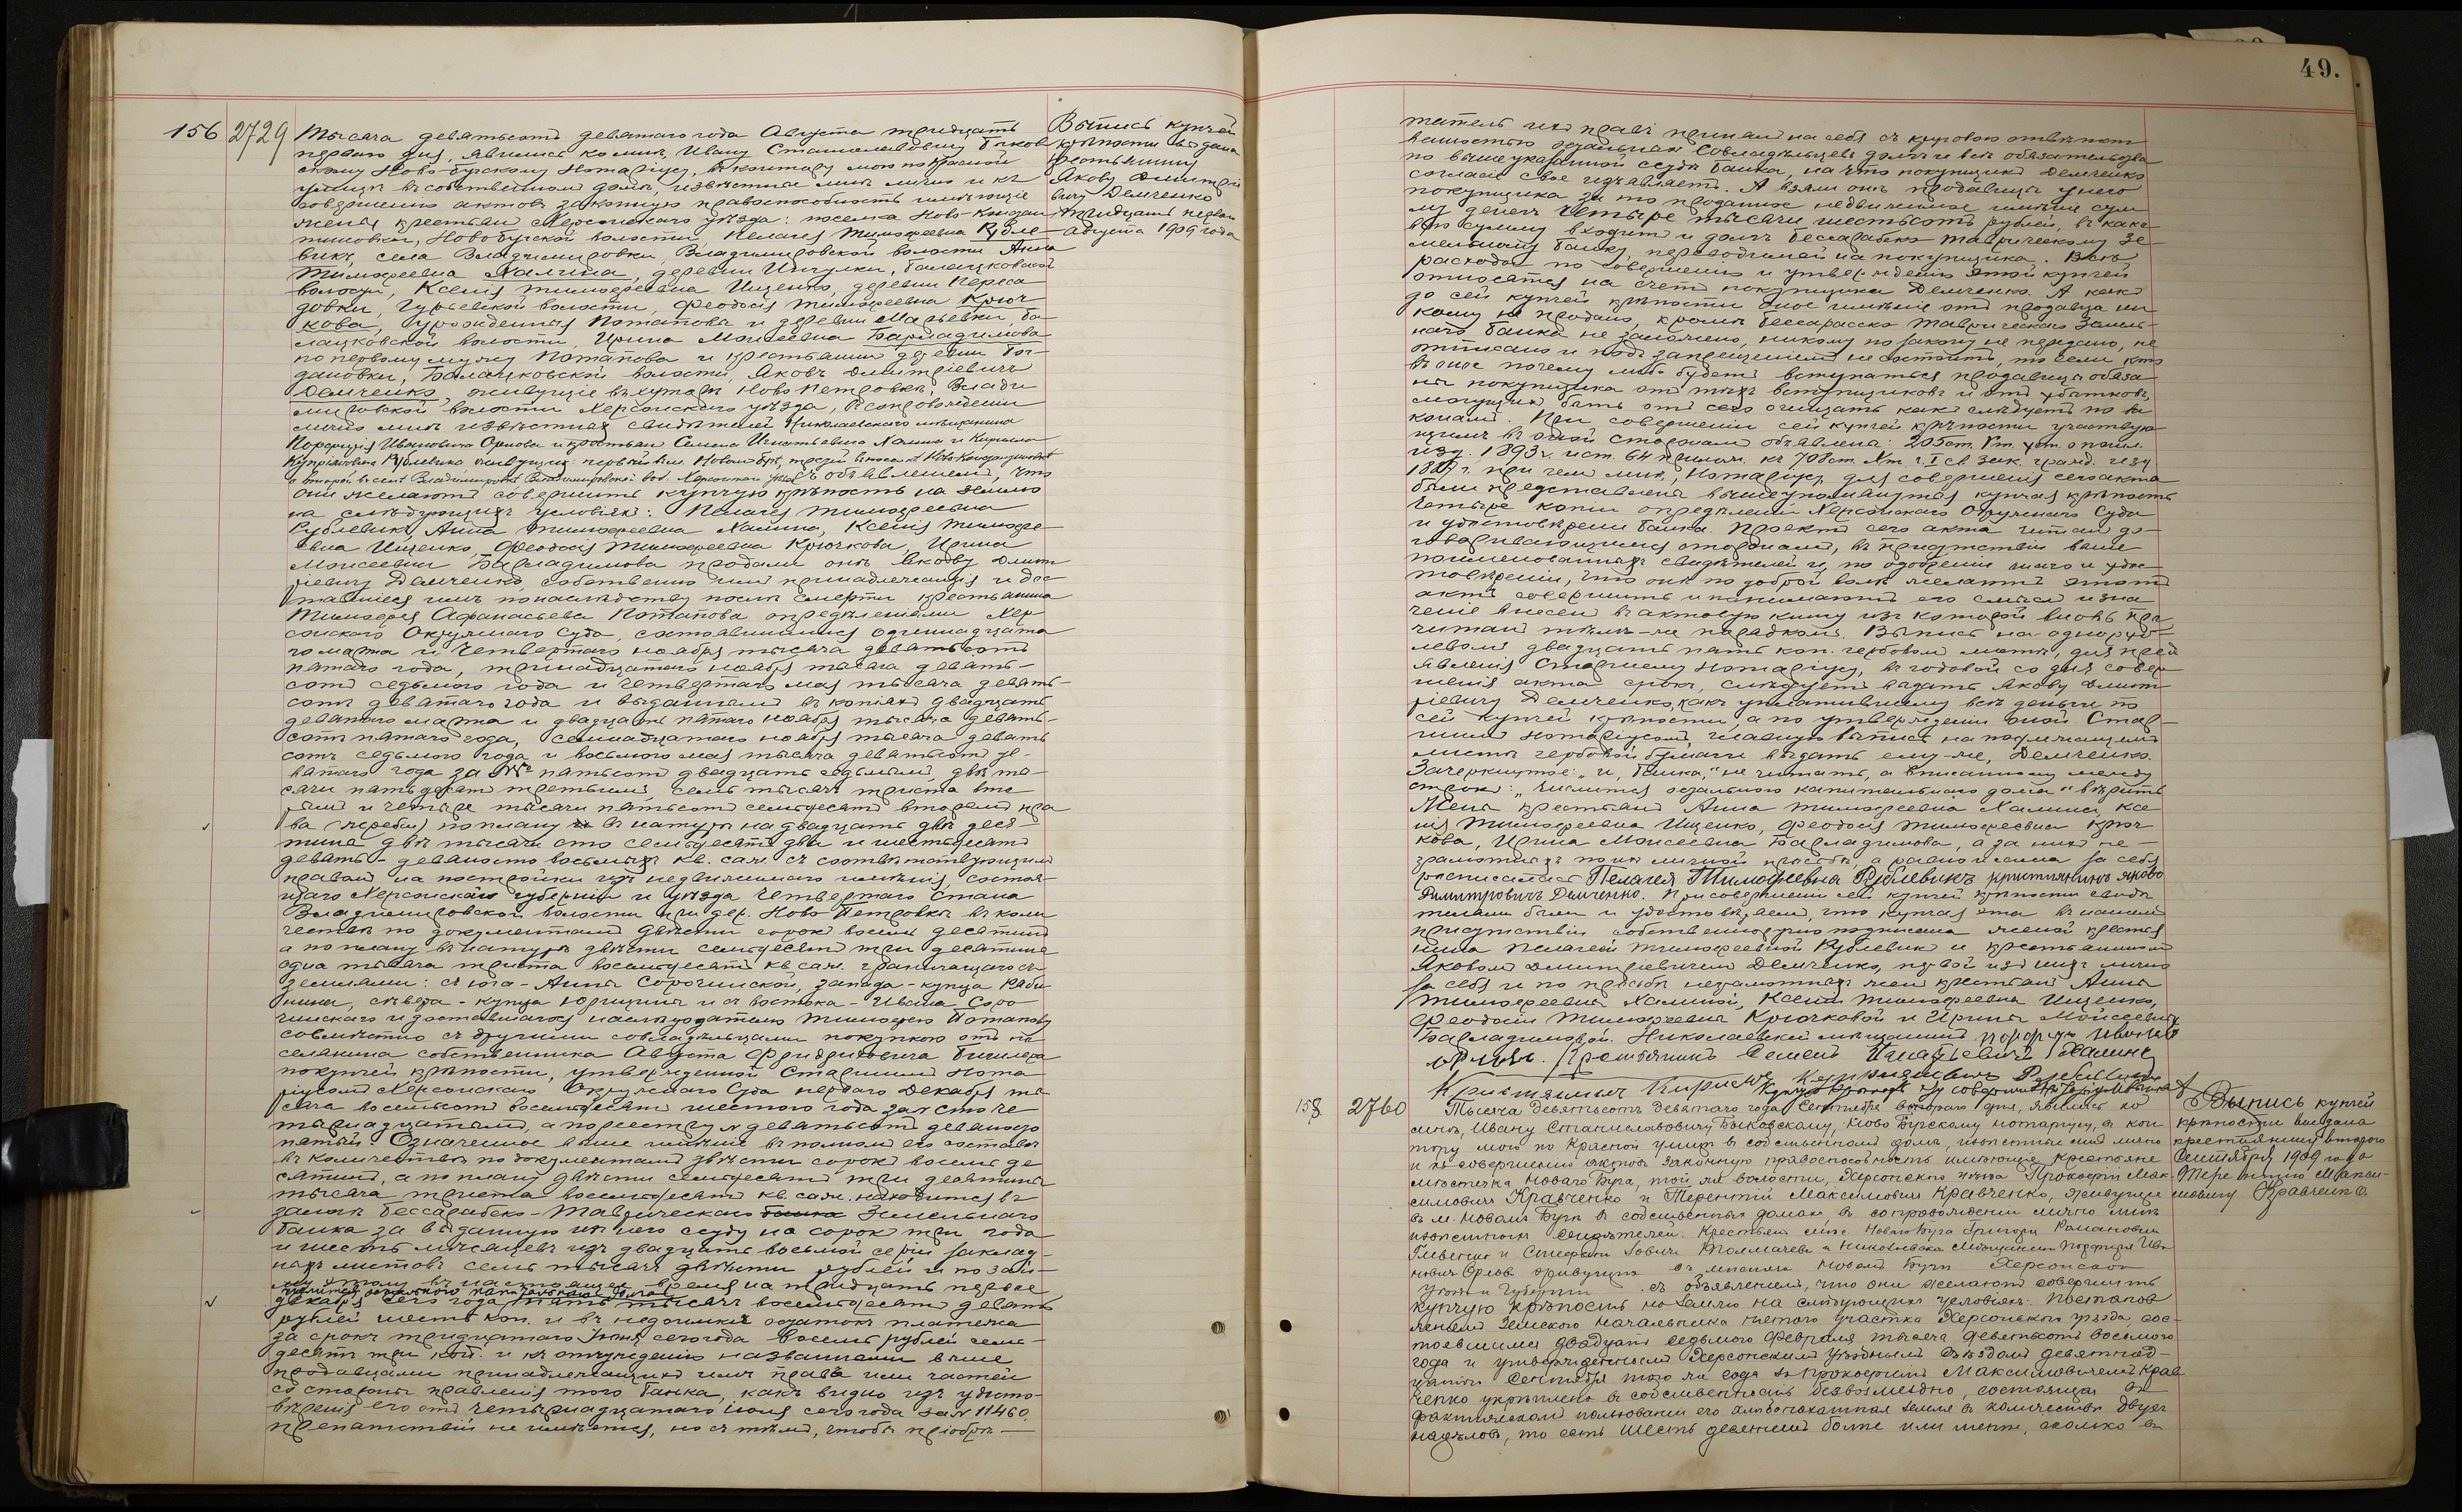 156 2729 Тысяча девятьсотъ девятаго года Августа тридцать
перваго дня, явились ко мнѣ, Ивану Станиславовичу Быков
скому Ново-Бугскому Нотаріусу, въ контору мою по Красной
улицѣ въ собственномъ домѣ, извѣстные мнѣ лично и къ
совершенію актовъ законную правоспособность имѣющіе
жены крестьянъ Херсонскаго уѣзда: поселка Ново-Констан
тиновки, Новобугской волости, Пелагея Тимофеевна Рубле-
викъ, села Владимировки, Владимировской волости Анна
Тимофеевна Халина, деревни Ингулки, Балацковской
волости, Ксенія Тимофеевна Ищенко, деревни Переса
довки, Гурьевской волости, Феодосія Тимофеевна Крюч
кова, урожденныя Потаповы и деревни Марьевки, Ба
лацковской волости, Ирина Моисеевна Барладимова
по первому мужу Потапова и крестьянинъ деревни Бог-
дановки, Балацковской волости, Яковъ Дмитріевичъ
Демченко, живущіе въ хуторѣ Ново Петровкѣ, Влади
мировской волости Херсонскаго уѣзда, въ сопровожденіи
лично мнѣ извѣстныхъ свидѣтелей Николаевскаго мѣщанина
Порфирія Ивановича Орлова и крестьянъ Семена Игнатьевича Халина и Кирилла
Купріяновича Рублевика, живущихъ: первый въ м. Новомъ Бугѣ, третій въ поселкѣ Ново-Константиновкѣ
и второй въ селѣ Владимировкѣ Владимировской вол. Херсонскаго уѣзда съ объявленіемъ, что
они желаютъ совершить купчую крѣпость на землю
на слѣдующихъ условіяхъ: Пелагея Тимофеевна
Рублевикъ, Анна Тимофеевна Халина, Ксенія Тимофе-
евна Ищенко, Феодосія Тимофеевна Крючкова, Ирина
Моисеевна Барладимова продали онѣ Якову Дмит
ріевичу Демченко, собственно имъ принадлежащія и дос
тавшіеся имъ по наслѣдству послѣ смерти крестьянина
Тимофея Афанасьева Потапова опредѣленіями Хер
сонскаго Окружнаго Суда, состоявшимися одиннадцата
го марта и четвертаго ноября тысяча девятьсотъ
пятаго года, тринадцатаго ноября тысяча девять-
сотъ седьмого года и четвертаго мая тысяча девять-
сотъ девятаго года и выданными въ копіяхъ двадцать
девятаго марта и двадцать пятаго ноября тысяча девять-
сотъ пятаго года, семнадцатаго ноября тысяча девять
сотъ седьмого года и восьмого мая тысяча девятьсотъ де-
вятаго года за №№ пятьсотъ двадцать седьмымъ, двѣ ты-
сячи пятьдесятъ третьимъ, семь тысячъ триста вто
рымъ и четыре тысячи пятьсотъ семьдесятъ вторымъ пра
ва (жребіи) по плану въ натурѣ на двадцать двѣ деся-
тины двѣ тысячи сто семьдесятъ двѣ и шестьдесятъ
девять-девяносто восьмыхъ кв. саж. съ соотвѣтствующимъ
правомъ на постройки изъ недвижимаго имѣнія, состоя-
щаго Херсонской губерніи и уѣзда четвертаго стана
Владимировской волости при дер. Ново Петровкѣ въ коли
чествѣ по документамъ двѣсти сорокъ восемь десятинъ
а по плану въ натурѣ двѣсти семьдесятъ три десятины
одна тысяча триста восемьдесятъ кв. саж. граничащаго съ
землями: съ юга - Анны Сорочинской, запада - купца Раби-
нина, сѣвера - купца Юрицына и съ востока - Ивана Соро
чинскаго и доставшагося наслѣдодателю Тимофею Потапову
совмѣстно съ другими совладѣльцами покупкою отъ по
селянина собственника Августа Фридриховича Бишлера
по купчей крѣпости, утвержденной Старшимъ Нота
ріусомъ Херсонскаго Окружнаго Суда перваго Декабря ты
сяча восемьсотъ восемьдесятъ шестого года за № сто че
тырнадцатымъ, а по реестру № девятьсотъ девяносто
пятый. Означенное выше имѣніе въ полномъ его составѣ
въ количествѣ по документамъ двѣсти сорокъ восемь де
сятинъ, а по плану двѣсти семьдесятъ три десятины
тысяча триста восемьдесятъ кв. саж. находится въ
залогѣ Бессарабско-Таврическаго банка Земельнаго
Банка за выданную изъ него ссуду на сорокъ три года
и шесть мѣсяцевъ изъ двадцать восьмой серіи заклад-
ныхъ листовъ семь тысячъ двѣсти рублей и по зай-
му этому въ настоящее время на тридцать первое
числится остального капитальнаго долга
декабря сего года пять тысячъ восемьдесятъ девять
рублей шесть коп. и въ недоимкѣ остатокъ платежа
за срокъ тридцатаго Іюня сего года восемь рублей семь-
десятъ три коп. и къ отчужденію названными выше
продавцами принадлежащихъ имъ правъ или частей
со стороны правленія того Банка, какъ видно изъ удосто-
вѣренія его отъ четырнадцатаго Іюля сего года за № 11460.
препятствій не имѣется, но съ тѣмъ, чтобы пріобрѣ-
Выпись купчей
крѣпости выдана
крестьянину
Якову Дмитрі
евичу Демченко
тридцать перваго
Августа 1909 года
49.
татель ихъ правъ принялъ на себя съ круговою отвѣтст
венностью остальныхъ совладѣльцевъ долгъ и всѣ обязательства
по вышеуказанной ссудѣ Банка, на что покупщикъ Демченко
согласіе свое изъявляетъ. А взяли онѣ продавцы у него
покупщика за то проданное недвижимое имѣніе сум
му денегъ четыре тысячи шестьсотъ рублей, въ како
вую сумму входитъ и долгъ Бессарабско Таврическому Зе-
мельному Банку, переводимый на покупщика. Всѣ
расходы по совершенію и утвержденію этой купчей
относятся на счетъ покупщика Демченко. А какъ
до сей купчей крѣпости оное имѣніе отъ продавца ни
кому не продано, кромѣ Бессарабско Таврическаго Земель-
наго Банка не заложено, никому по закону не передано, не
отписано и подъ запрещеніемъ не состоитъ, то если кто
въ оное почему либо будетъ вступаться продавцы обяза
ны покупщика отъ тѣхъ вступщиковъ и отъ убытковъ,
могущихъ быть отъ сего очищать какъ слѣдуетъ по за
конамъ. При совершеніи сей купчей крѣпости участвую
щимъ въ оной сторонамъ объявлены: 205 ст. V т. уст. о пошл.
изд. 1893 г. и ст. 64 прилож. къ 708 ст. X т. ч. I св. зак. гражд. изд
1887 г. при чемъ мнѣ, Нотаріусу, для совершенія сего акта
были представлены вышеупомянутыя купчая крѣпость
четыре копіи опредѣленій Херсонскаго Окружнаго Суда
и удостовѣреніе Банка. Проектъ сего акта читанъ до-
говаривающимся сторонамъ, въ присутствіи выше
поименованныхъ свидѣтелей и, по одобреніи онаго и удос
товѣреніи, что они по доброй волѣ желаютъ этотъ
актъ совершить и понимаютъ его смыслъ и зна
ченіе внесенъ въ актовую книгу изъ которой вновь про
читанъ тѣмъ-же порядкомъ. Выпись на однорубо
левомъ двадцать пять коп. гербовомъ листѣ, для предъ
явленія Старшему Нотаріусу, въ годовой со дня совер
шенія акта срокъ, слѣдуетъ выдать Якову Дмит
ріевичу Демченко, какъ уплатившему всѣ деньги по
сей купчей крѣпости, а по утвержденіи оной Стар-
шимъ Нотаріусомъ, главную выпись на надлежащемъ
листѣ гербовой бумаги выдать ему-же, Демченко.
Зачеркнутое: „и, банка," не читать, а вписанному между
строкъ: „числится остального капитальнаго долга" вѣрить
Жены крестьянъ Анна Тимофеевна Халина, Ксе
нія Тимофеевна Ищенко, Феодосія Тимофеевна Крюч
кова, Ирина Моисеевна Барладимова, а за нихъ не-
грамотныхъ по ихъ личной просьбѣ, а равно и сама за себя
росписалась Пелагея Тимофеевна Рублевикъ кристиянинъ Яково
Димитровичъ Демченко. При совершеніи сей купчей крѣпости свидѣ
телями были и удостовѣряемъ, что купчая эта въ нашемъ
присутствіи собственноручно подписана женой крестья
нина Пелагеей Тимофеевной Рублевикъ и крестьяниномъ
Яковомъ Дмитріевичемъ Демченко, первой изъ нихъ лично
за себя и по просьбѣ неграмотныхъ женъ крестьянъ Анны
Тимофеевны Халиной, Ксеніи Тимофеевны Ищенко,
Феодосіи Тимофеевны Крючковой и Ирины Моисеевны
Барладимовой. Николаевскій мѣщанинъ Порфирій Ивановъ
Орловъ. Крестьянинъ Семенъ Игнатьевичъ Халинъ
Кристиянинъ Кирило Куприяновичъ Рублевикъ
158 2760 Тысяча девятьсотъ девятаго года Сентября второго дня, явились ко
мнѣ, Ивану Станиславовичу Быковскому, Ново Бугскому нотаріусу, въ кон
тору мою по Красной улицѣ въ собственномъ домѣ, извѣстные мнѣ лично
и къ совершенію актовъ законную правоспособность имѣющіе крестьяне
мѣстечка Новаго Буга, той же волости, Херсонскаго уѣзда Прокофій Мак
симовичъ Кравченко и Терентій Максимовичъ Кравченко, живущіе
въ м. Новомъ Бугѣ въ собственныхъ домахъ въ сопровожденіи лично мнѣ
извѣстныхъ свидѣтелей: Крестьянъ мѣс. Новаго Буга Григорія Романовича
и Стефана Толмачева и Николаевскаго мѣщанина Порфирія Ива
новича Орлова живущихъ въ мѣстечкѣ Новомъ Бугѣ Херсонскаго
уѣзда и Губерніи съ объявленіемъ, что они желаютъ совершить
купчую крѣпость на землю на слѣдующихъ условіяхъ: Постанов
леніемъ Земскаго Начальника пятаго участка Херсонскаго уѣзда, сос-
тоявшимся двадцать седьмого Февраля тысяча девятьсотъ восьмого
года и утвержденнымъ Херсонскимъ Уѣзднымъ Съѣздомъ девятнад-
цатаго Сентября того же года за Прокофіемъ Максимовичемъ Крав
ченко укрѣплена въ собственность безвозмездно, состоящая въ
фактическомъ пользованіи его пахатная земля въ количествѣ двухъ
надѣловъ, то есть шесть десятинъ болѣе или менѣе, сколько въ
Выпись купчей
крѣпости выдана
крестьянину второго
Сентября 1909 года
Терентію Макси-
мовичу Кравченко.